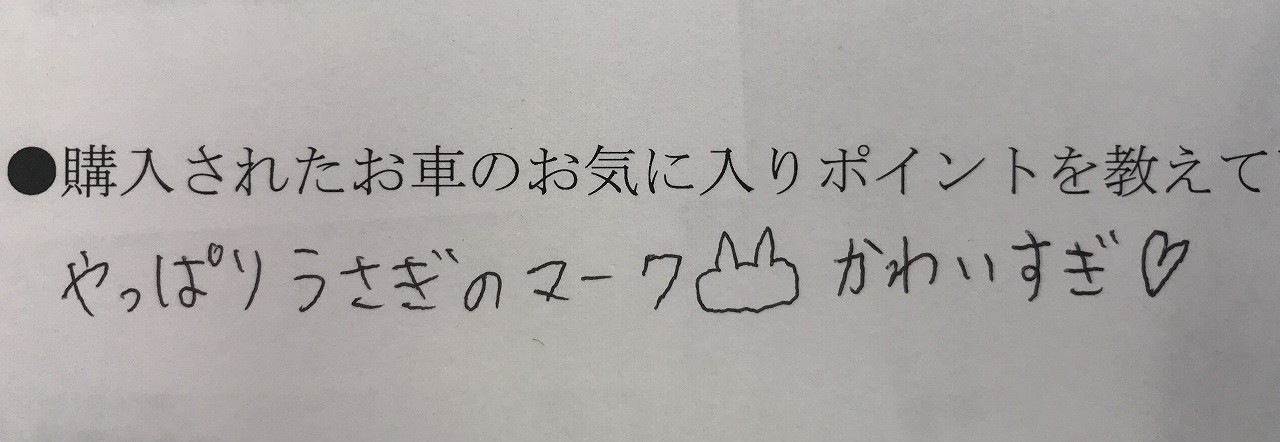 ●購入されたお車のお気に入りポイントを教えて
やっぱりうさぎのマーク かわいすぎ♡